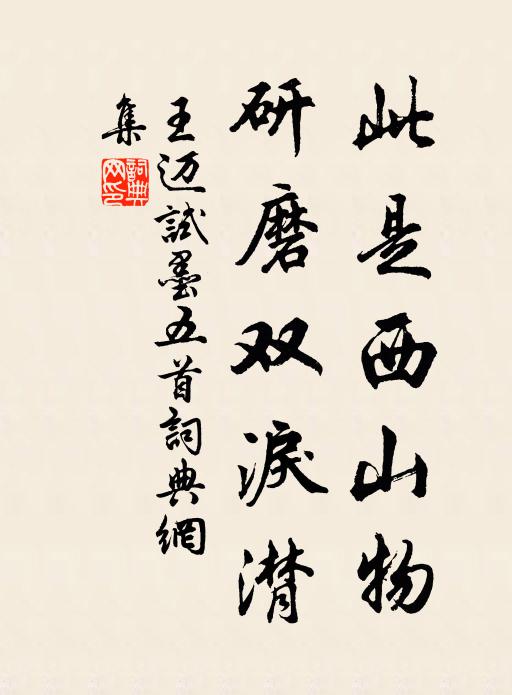 此是西山物
研磨双淚潸
王迈試墨五首詞典網
集
詞典網印